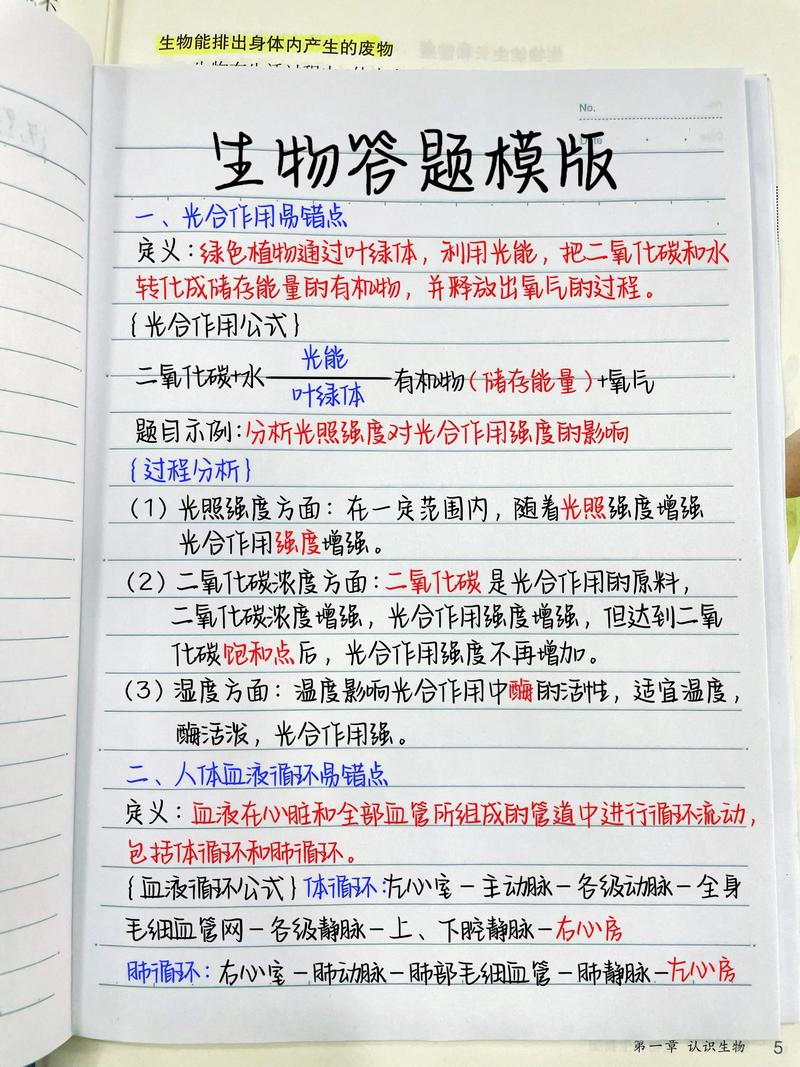 生物能排出身体内产生的废物
No.
Date
生物答题模版
一、光合作用易错点
定义：绿色植物通过叶绿体，利用光能，把二氧化碳和水
转化成储存能量的有机物，并释放出氧气的过程。
{光合作用公式}
光能
二氧化碳+水——有机物(储存能量)+氧气
叶绿体
题目示例：分析光照强度对光合作用强度的影响
{过程分析}
(1) 光照强度方面：在一定范围内，随着光照强度增强
光合作用强度增强。
(2) 二氧化碳浓度方面：二氧化碳是光合作用的原料，
二氧化碳浓度增强，光合作用强度增强，但达到二氧
化碳饱和点后，光合作用强度不再增加。
(3) 湿度方面：温度影响光合作用中酶的活性，适宜温度，
酶活泼，光合作用强。
二、人体血液循环易错点
定义：血液在心脏和全部血管所组成的管道中进行循环流动，
包括体循环和肺循环。
{血液循环公式}体循环：左心室－主动脉－各级动脉－全身
毛细血管网－各级静脉－上、下腔静脉－右心房
肺循环：右心室－肺动脉－肺部毛细血管－肺静脉－左心房
第一章 认识生物 5